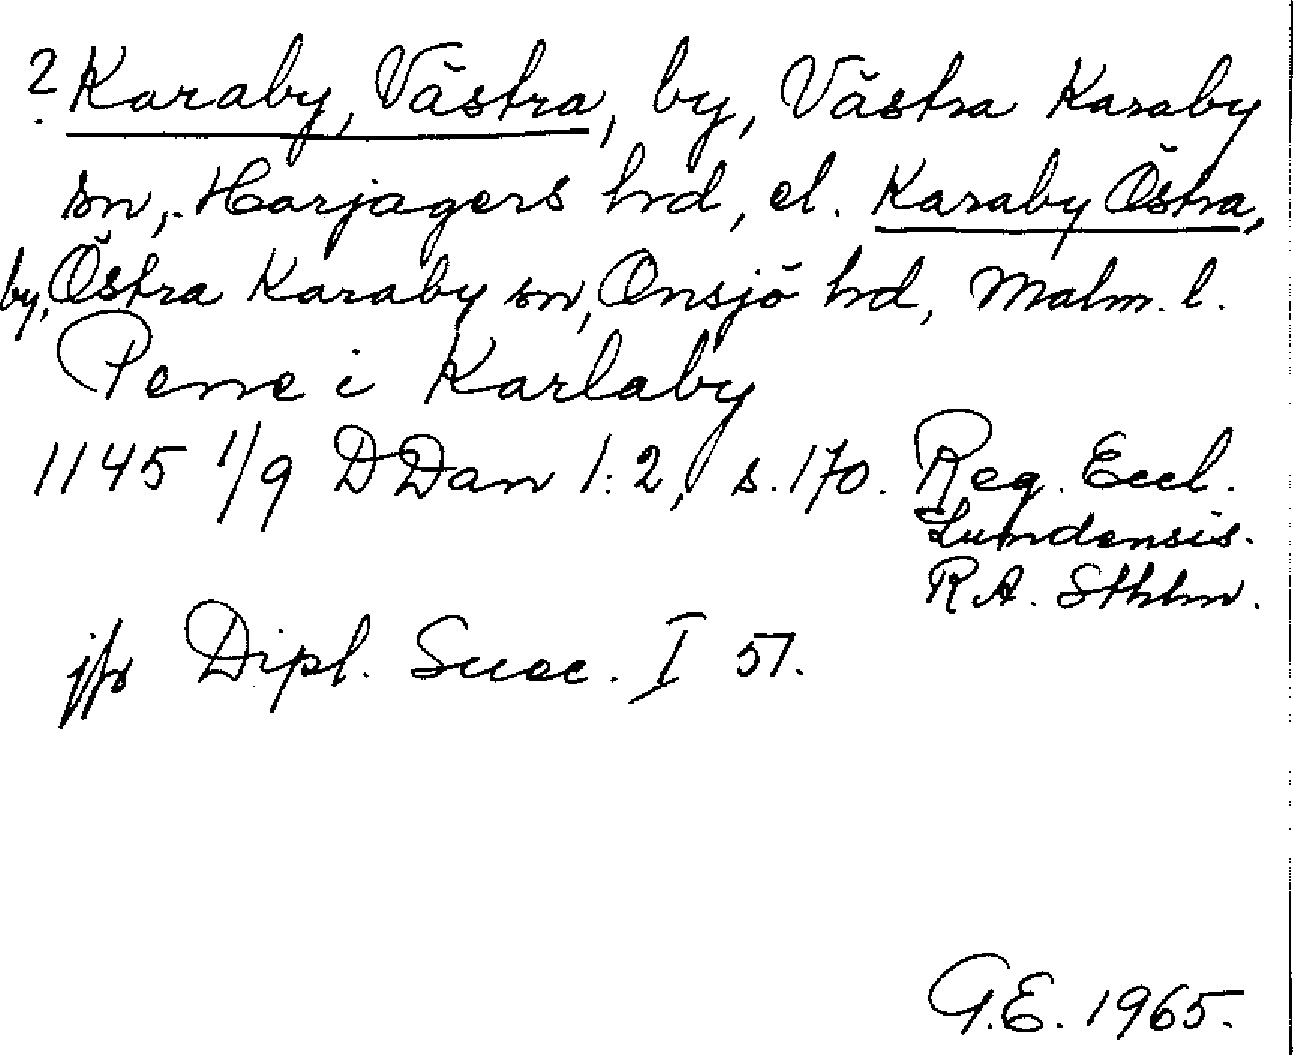 ? Karaby, Västra, by, Västra Karaby
sn, Harjagers hrd, el. Karaby Östra,
by, Östra Karaby sn, Onsjö hrd, Malm. l.
Penne i Karlaby
1145 1/9 DDan 1:2, s. 170. Reg. Eccl.
Lundensis.
R.A. Sthlm.
jfr Dipl. Suec. I 57.
G.E. 1965.